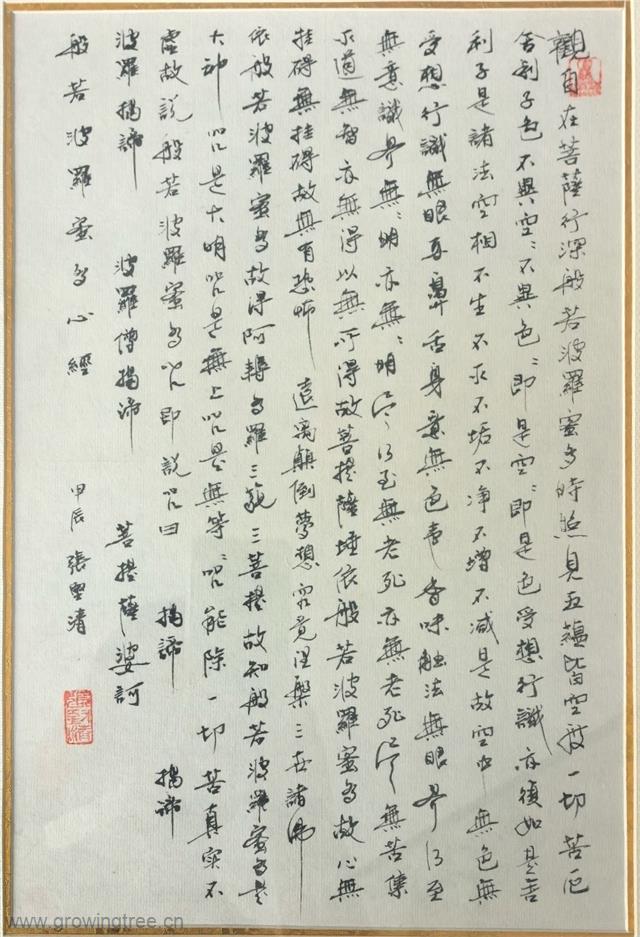 觀自在菩薩行深般若波羅蜜多時照見五蘊皆空度一切苦厄
舍利子色不異空〻不異色〻即是空〻即是色受想行識亦復如是舍
利子是諸法空相不生不滅不垢不净不增不减是故空中無色無
受想行識無眼耳鼻舌身意無色聲香味触法無眼界乃至
無意識界無〻明亦無〻明盡乃至無老死亦無老死盡無苦集
滅道無智亦無得以無所得故菩提薩埵依般若波羅蜜多故心無
挂碍無挂碍故無有恐怖 遠离顛倒夢想究竟涅槃三世諸佛
依般若波羅蜜多故得阿耨多羅三藐三菩提故知般若波羅蜜多是
大神咒是大明咒是無上咒是無等〻咒能除一切苦真实不
虛故説般若波羅蜜多咒即説咒曰 揭諦 揭諦
波羅揭諦 波羅僧揭諦 菩提薩婆訶
般若波羅蜜多心經
甲辰 張聖清
www.growingtree.cn